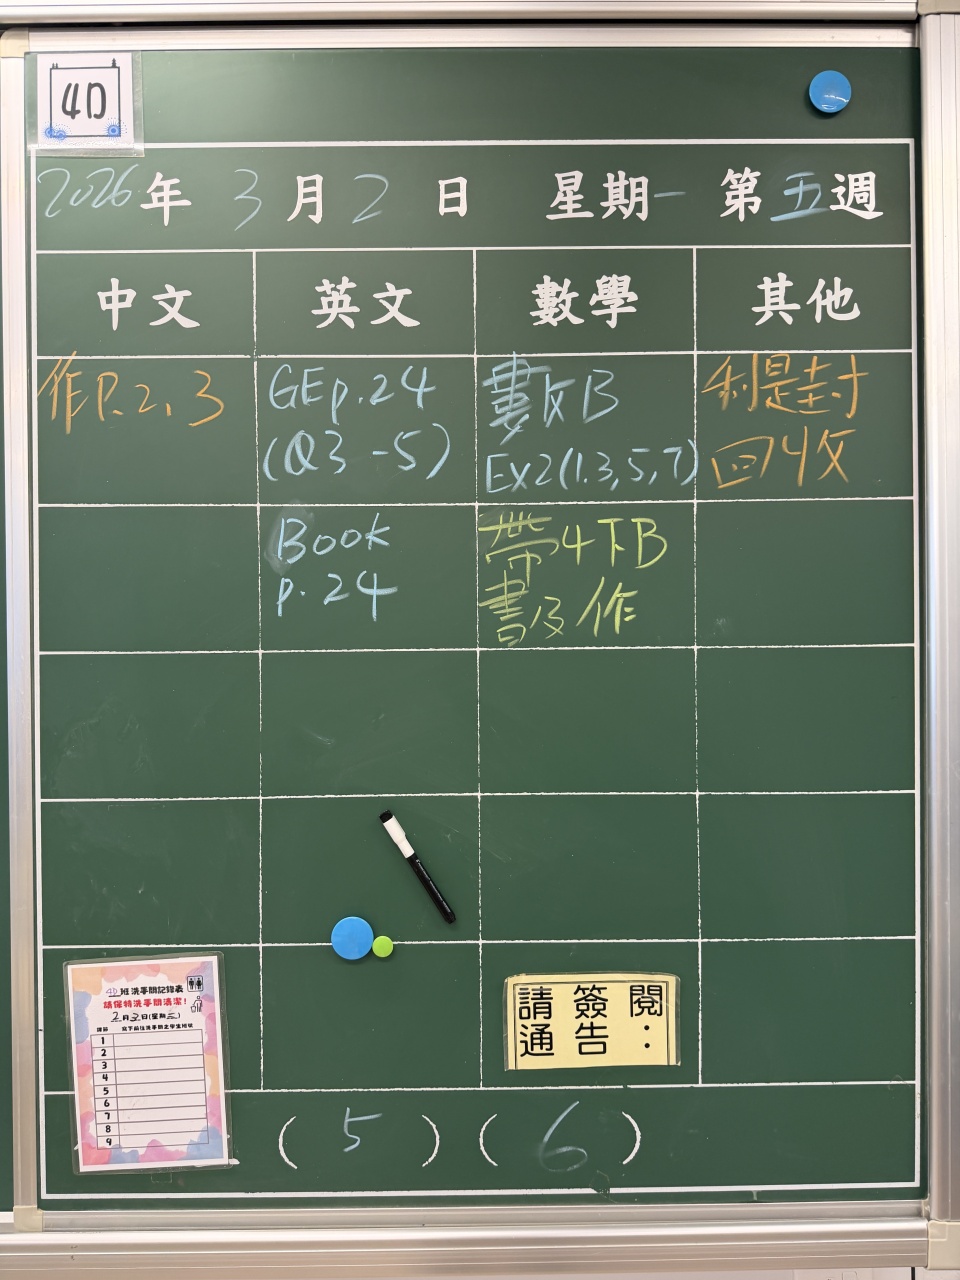 4D
2026年 3月 2日 星期一 第五週
中文 英文 數學 其他
作P.2、3
GEp.24
(Q3-5)
Book
p.24
數B
Ex2(1.3,5,7)
帶4下B
書及作
利是封
回收
4D班洗手間記錄表
請保持洗手間清潔!
2月3日(星期三)
課節 寫下前往洗手間之學生班號
1
2
3
4
5
6
7
8
9
請簽閱
通告:
(5) (6)